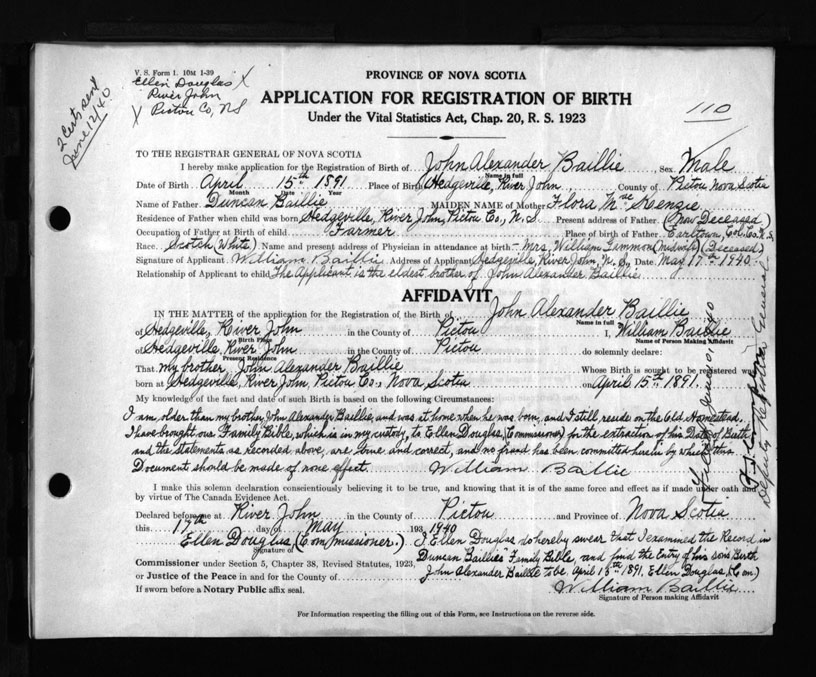 V. S. Form 1. 10M 1-39
Ellen Douglas X
River John
X Pictou Co, N S
2 Certs. sent
June 12/40
PROVINCE OF NOVA SCOTIA
APPLICATION FOR REGISTRATION OF BIRTH
Under the Vital Statistics Act, Chap. 20, R. S. 1923
110
TO THE REGISTRAR GENERAL OF NOVA SCOTIA
I hereby make application for the Registration of Birth of John Alexander Baillie, Sex Male
Name in full
Date of Birth April 15th 1891 Place of Birth Hedgeville, River John, County of Pictou Nova Scotia
Month Date Year
Name of Father Duncan Baillie MAIDEN NAME of Mother Flora McKenzie
Residence of Father when child was born Hedgeville, River John, Pictou Co., N. S Present address of Father (Now Deceased)
Occupation of Father at Birth of Child Farmer Place of birth of Father Earltown, Col. Co. N.S.
Race Scotch (White) Name and present address of Physician in attendance at birth - Mrs. William Lammon (midwife) (Deceased)
Signature of Applicant William Baillie Address of Applicant Hedgeville, River John, N. S, Date May 17th 1940
Relationship of Applicant to child The Applicant is the eldest brother of John Alexander Baillie.
AFFIDAVIT
IN THE MATTER of the application for the Registration of the Birth of John Alexander Baillie
Name in full
of Hedgeville, River John in the County of Pictou I, William Baillie
Birth Place Name of Person Making Affidavit
of Hedgeville, River John in the County of Pictou do solemnly declare:
Present Residence
That my brother, John Alexander Baillie Whose Birth is sought to be registered was
born at Hedgeville, River John, Pictou Co., Nova Scotia on April 15th 1891.
My knowledge of the fact and date of such Birth is based on the following Circumstances:
I am older than my brother John Alexander Baillie, and was at home when he was born, and I still reside on the Old Homestead.
I have brought our Family Bible, which is in my custody, to Ellen Douglas, (Commissioner) for the extraction of his Date of Birth
and the statements as recorded above, are true and correct, and no fraud has been committed herein by which this
Document should be made of none effect. William Baillie
I make this solemn declaration conscientiously believing it to be true, and knowing that it is of the same force and effect as if made under oath and
by virtue of The Canada Evidence Act.
Declared before me at River John in the County of Pictou and Province of Nova Scotia
this 17th day of May 193 1940
Ellen Douglas (Commissioner.) I Ellen Douglas do hereby swear that I examined the Record in
Signature of
Commissioner under Section 5, Chapter 38, Revised Statutes, 1923, Duncan Baillie's Family Bible, and find the Entry of his son's Birth
or Justice of the Peace in and for the County of John Alexander Baillie to be April 15th 1891. Ellen Douglas, (Com)
If sworn before a Notary Public affix seal. William Baillie
Signature of Person making Affidavit
For Information respecting the filling out of this Form, see Instructions on the reverse side.
Deputy Registrar General